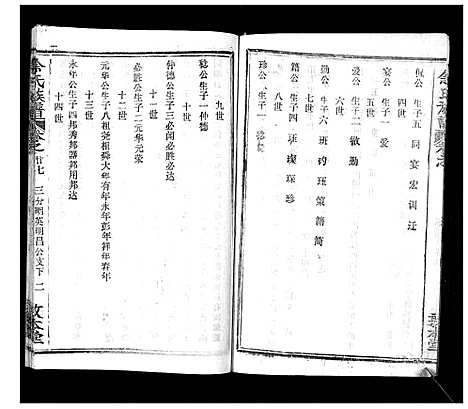 侃公 生子五 同 宴 宏 训 迁
四世
宴公 生子一 爱
五世
爱公 生子二 敏 勤
六世
勤公 生子六 班 珣 珏 策 籍 简
七世
公 生子四 璨 琛 珍
八世
珍公 生子一 稔
九世
稔公生子一仲德
十世
仲德公生子三必闻必胜必达
十一世
必胜公生子二元华元荣
十二世
元华公生子八祖尧相舜大年有年永年彭年祥年春年
十三世
永年公生子四邦秀邦器邦用邦达
十四世
余氏族谱 卷之廿七 三分明英明昌公支下 二 敦本堂